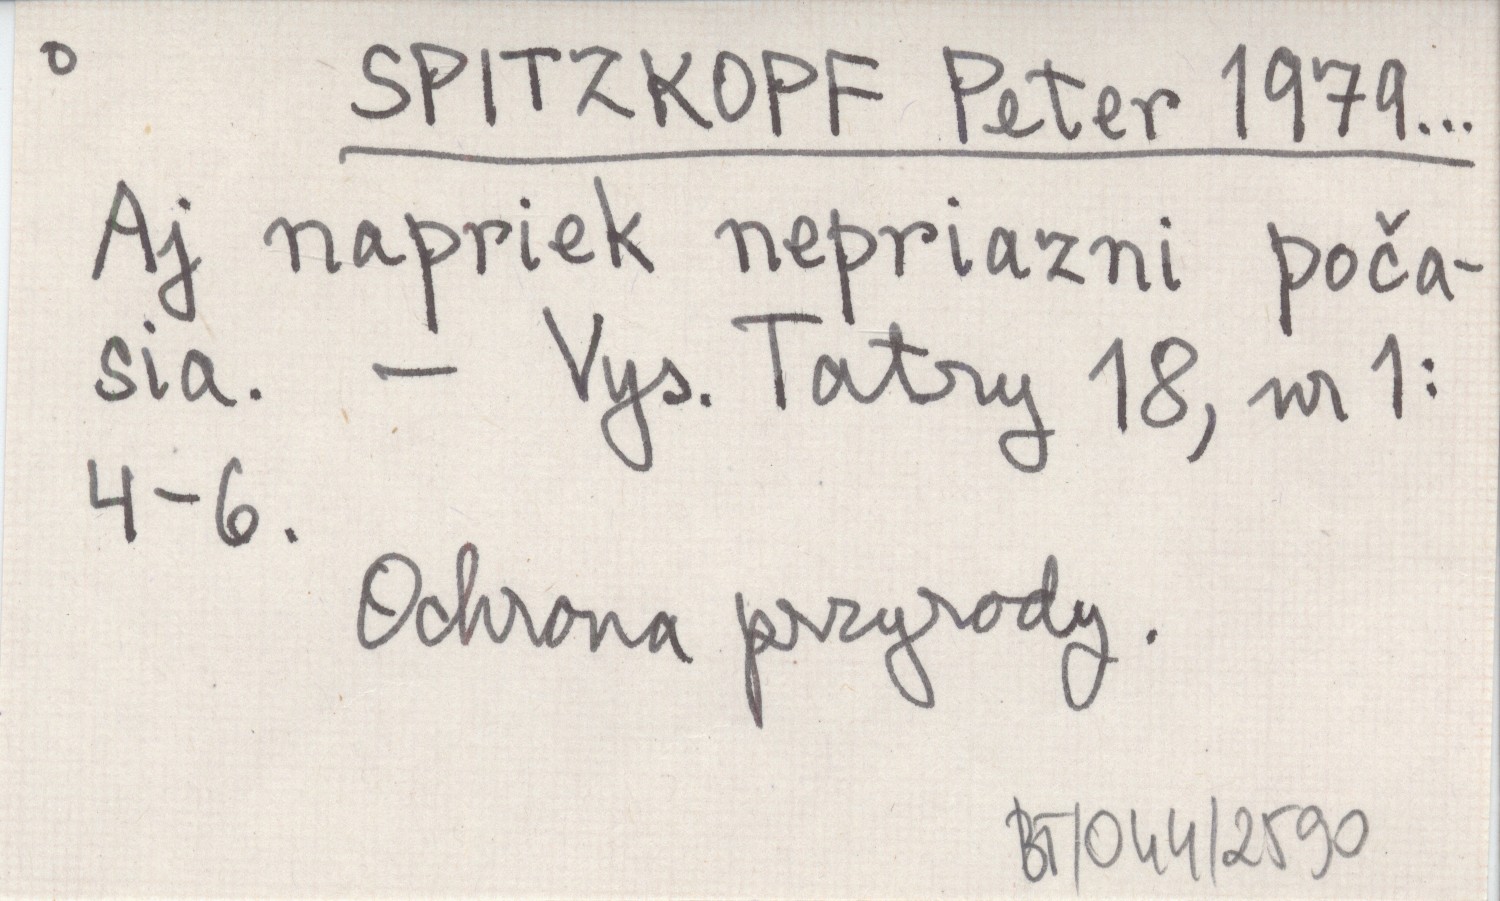 o
SPITZKOPF Peter 1979...
Aj napriek nepriazni poča-
sia. – Vys. Tatry 18, nr 1:
4-6.
Ochrona przyrody.
BT/044/2590